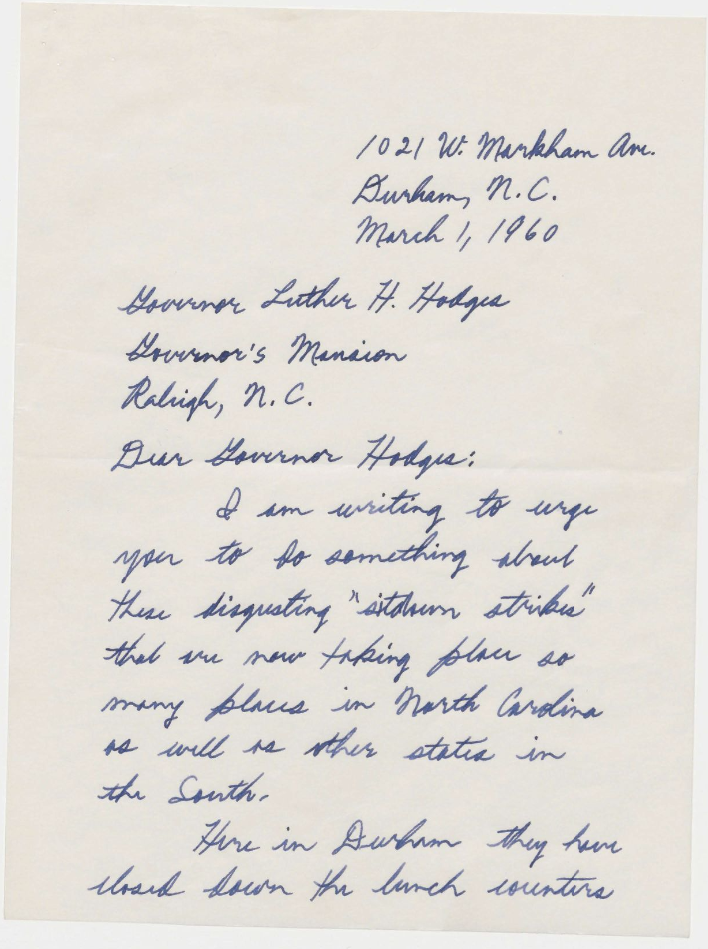 1021 W. Markham Ave.
Durham, N.C.
March 1, 1960
Governor Luther H. Hodges
Governor's Mansion
Raleigh, N.C.
Dear Governor Hodges:
I am writing to urge
you to do something about
these disgusting "sitdown strikes"
that are now taking place so
many places in North Carolina
as well as other states in
the South.
Here in Durham they have
closed down the lunch counters